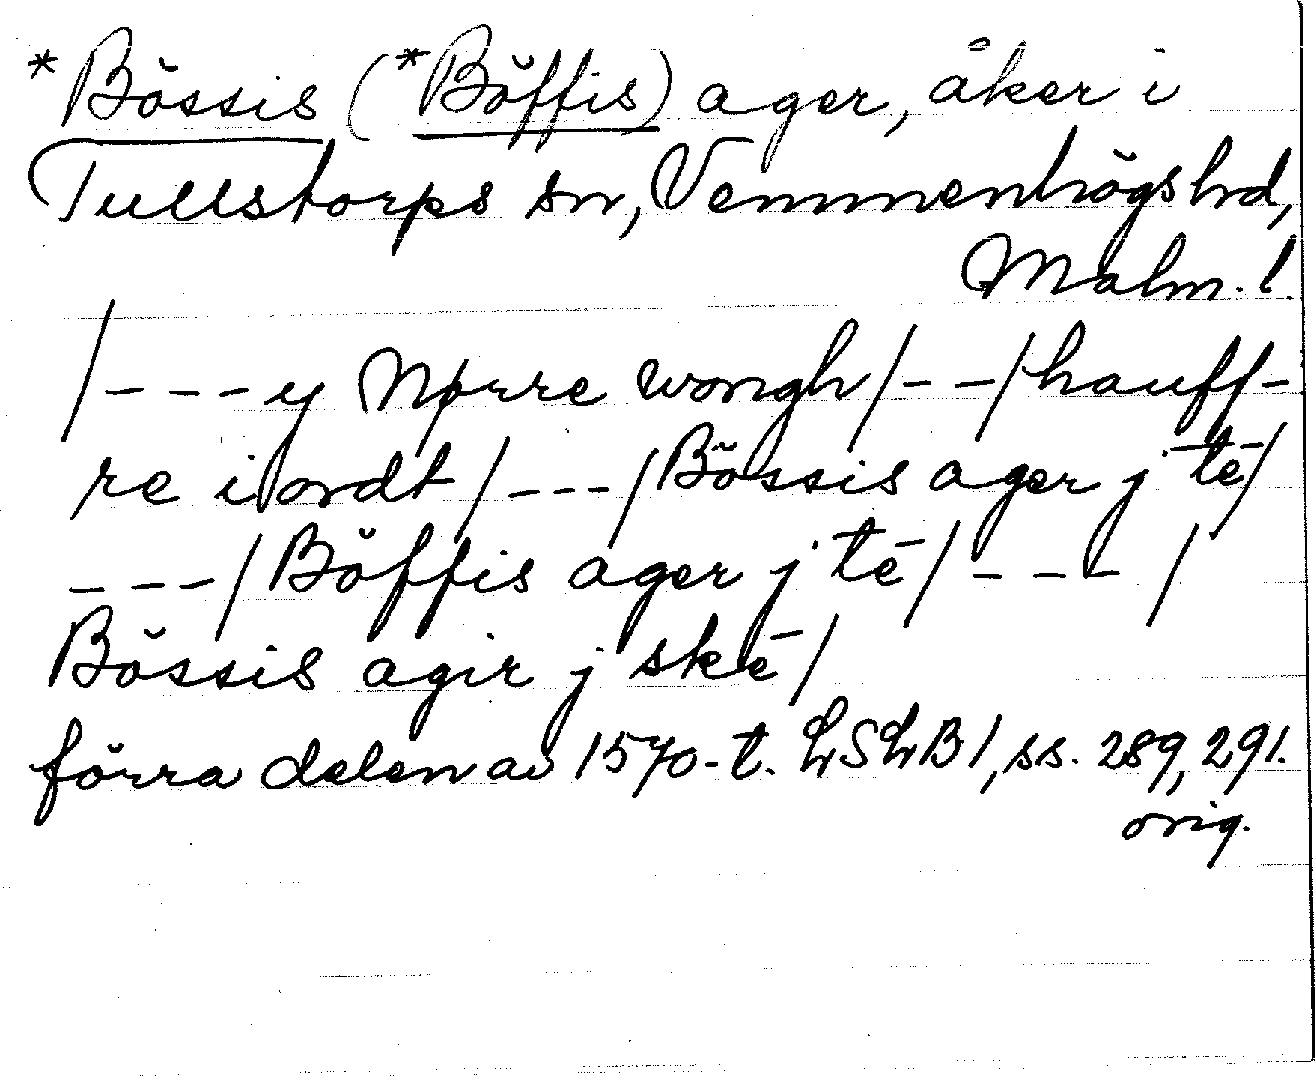 *Bössis (*Böffis) ager, åker i
Tullstorps sn, Vemmenhögs hd,
Malm. l.
/---y Nørre wongh/--/hauff-
re iordt/---/Bössis ager j tē/
---/Böffis ager j tē/---/
Bössis agir j skē/
förra delen av 1570-t. LSLB1, ss. 289, 291.
orig.